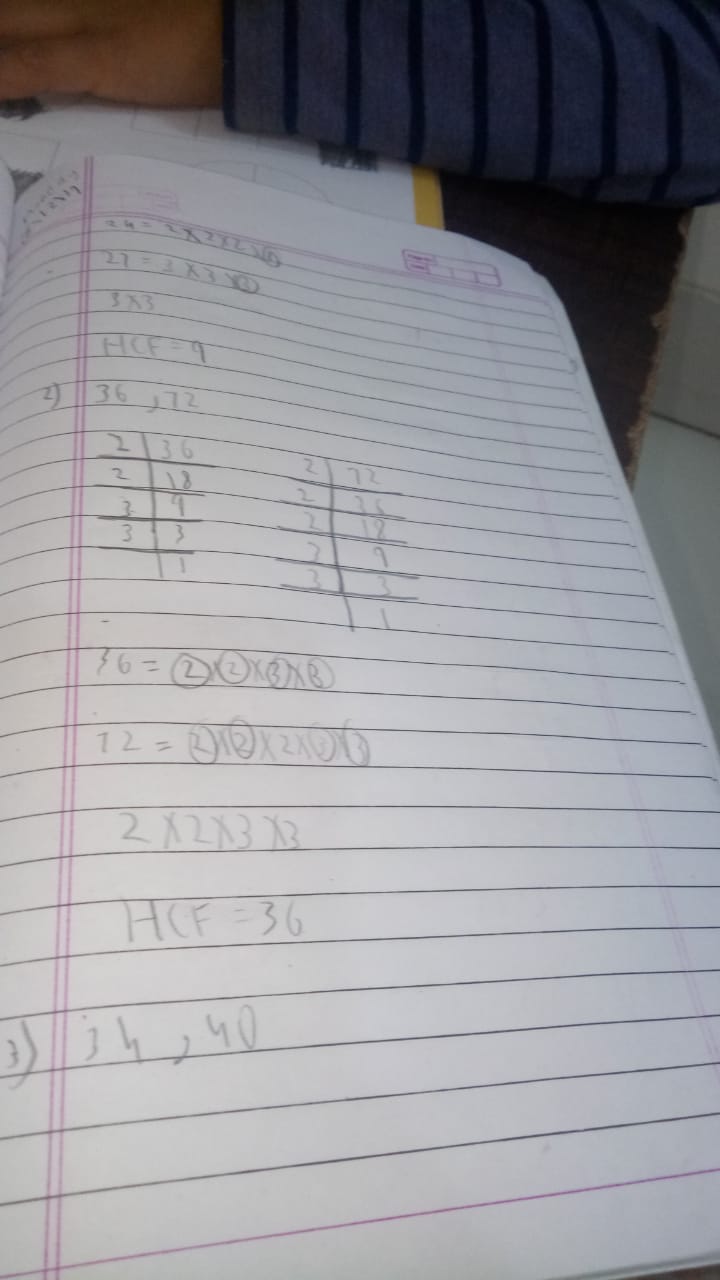 24 = 2×2×2×3
27 = 3×3×3
3×3
HCF = 9
2) 36, 72
2 | 36
2 | 18
3 | 9
3 | 3
1
2 | 72
2 | 36
2 | 18
3 | 9
3 | 3
1
36 = 2×2×3×3
72 = 2×2×2×3×3
2×2×3×3
HCF = 36
3) 34, 40